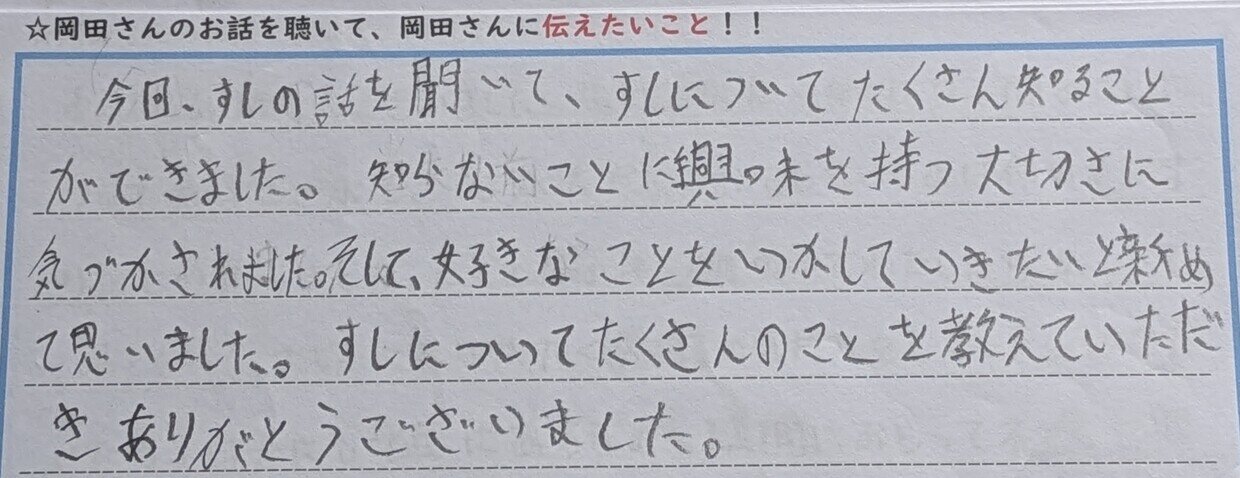 ☆岡田さんのお話を聴いて、岡田さんに伝えたいこと!!
今回、すしの話を聞いて、すしについてたくさん知ること
ができました。知らないことに興味を持つ大切さに
気づかされました。そして、好きなことをいかしていきたいと新め
て思いました。すしについてたくさんのことを教えていただ
きありがとうございました。